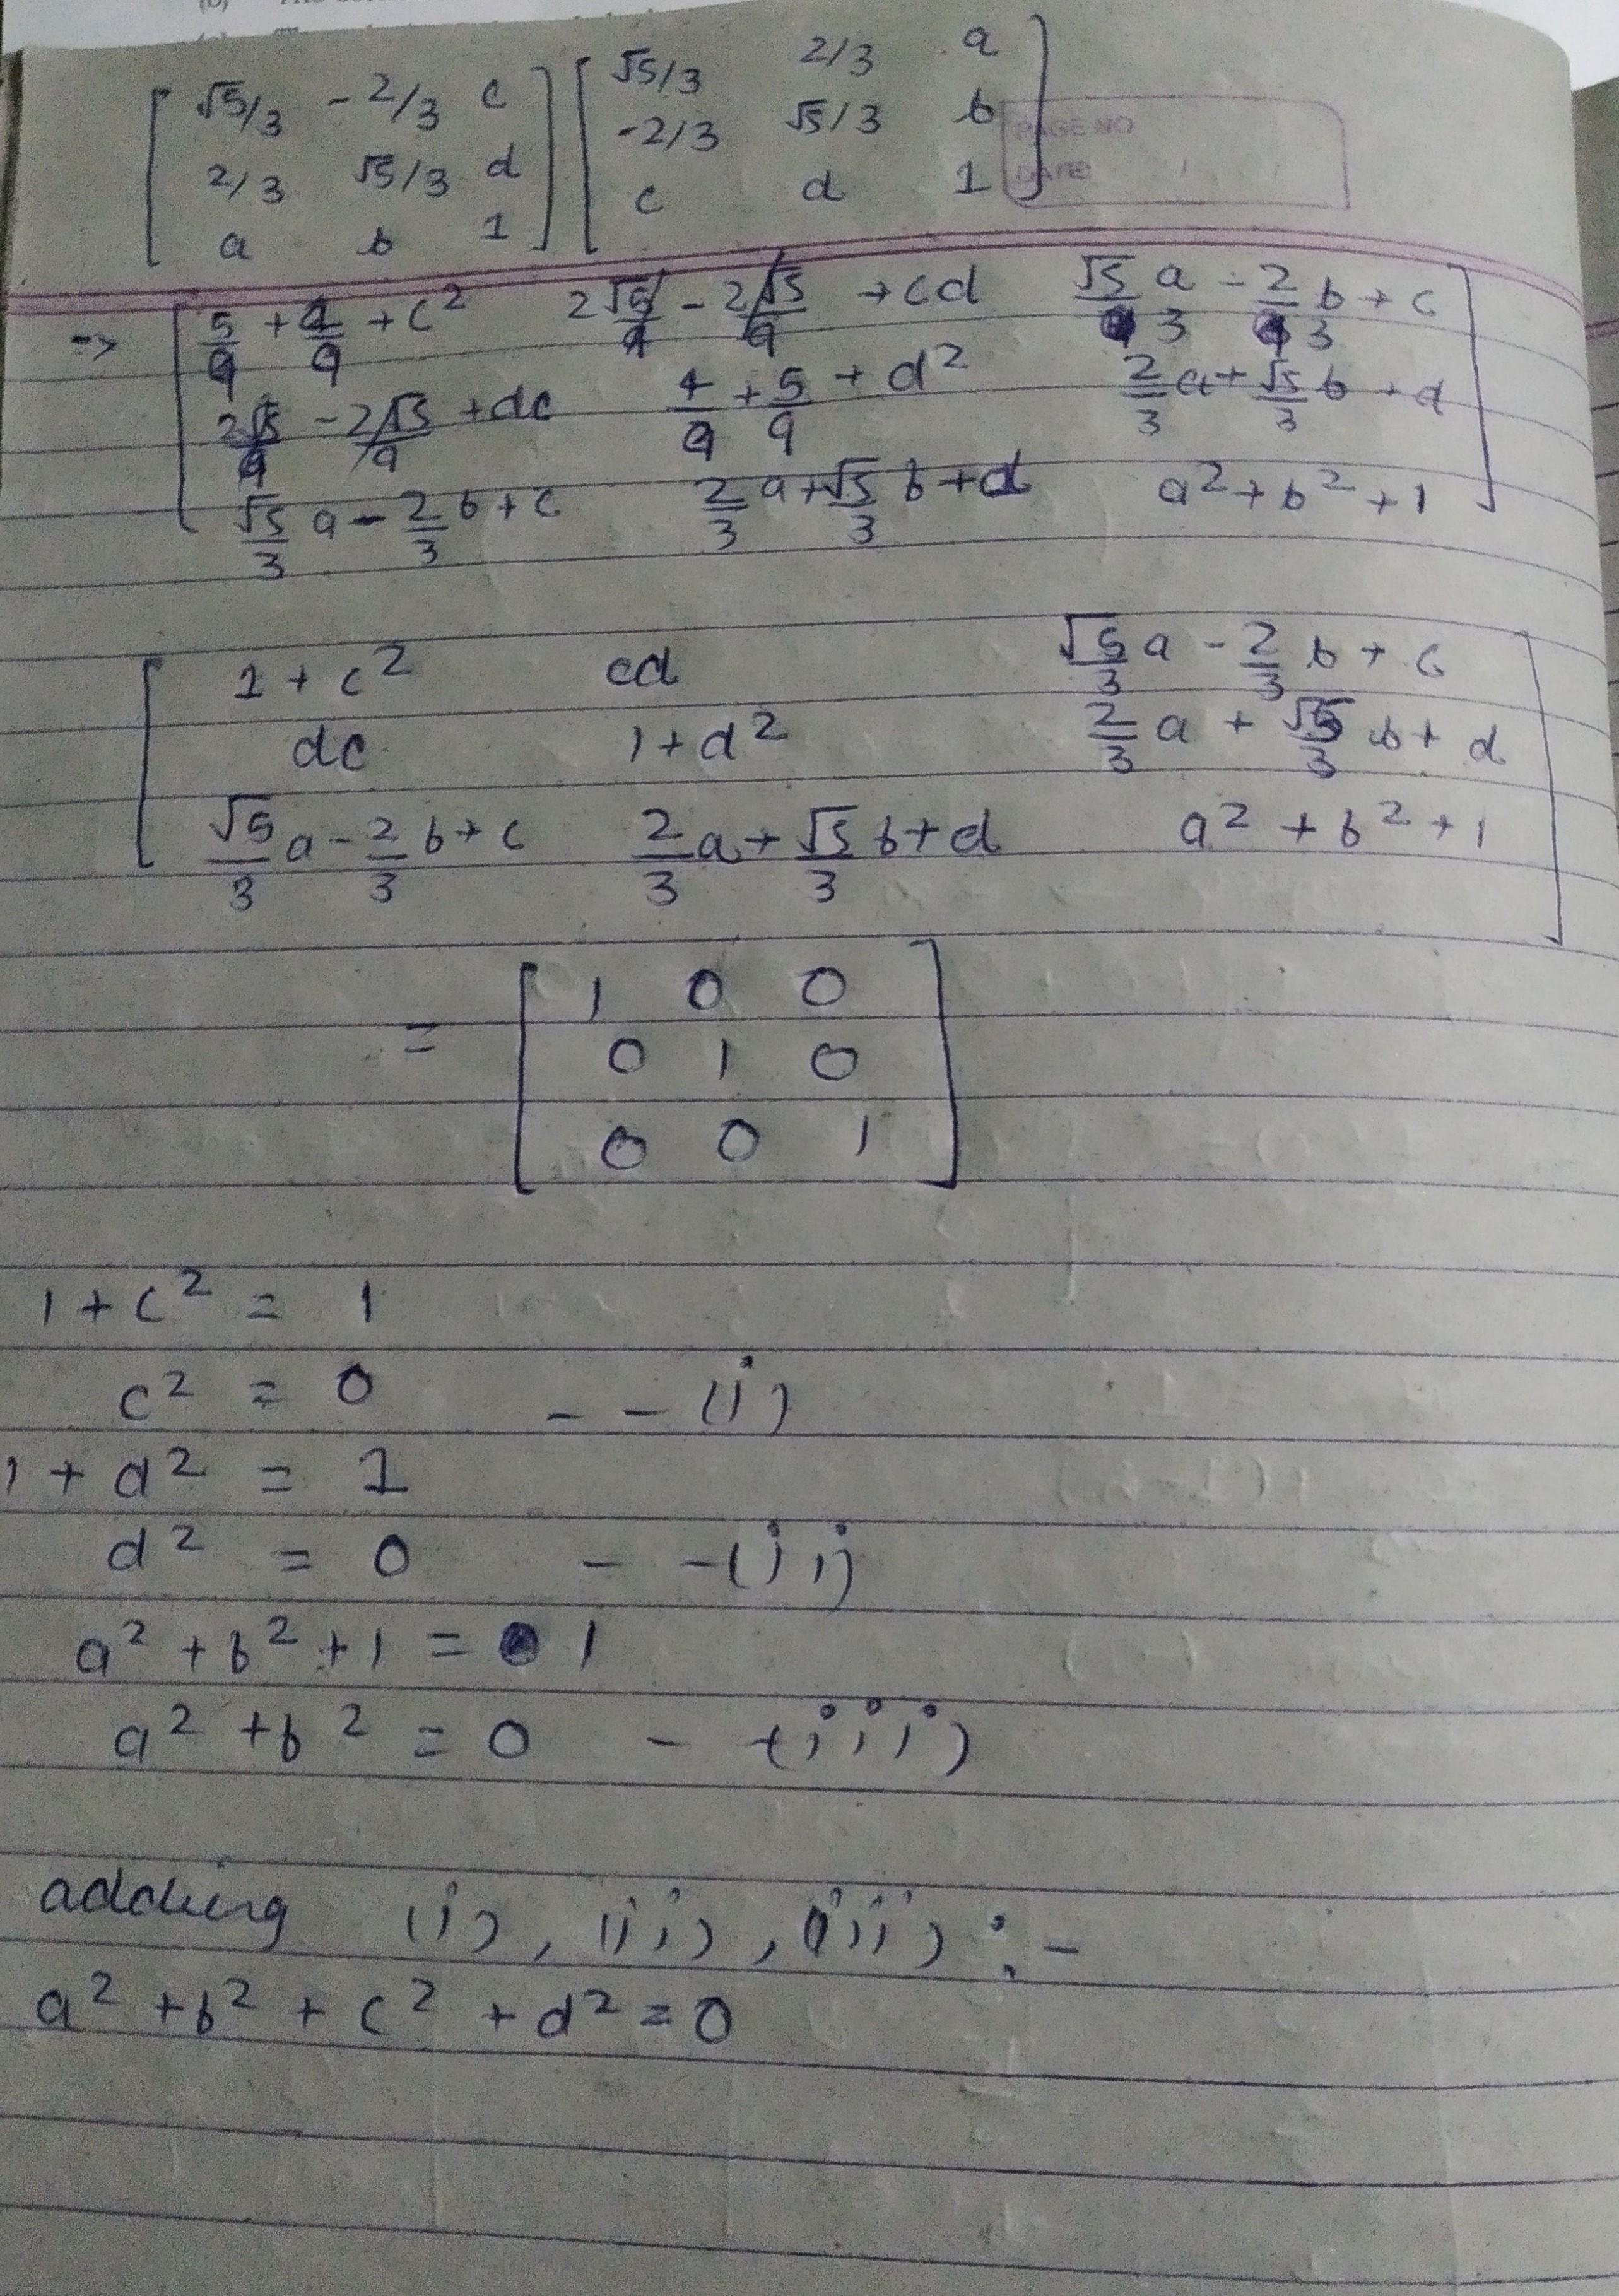 (b)
PAGE NO
DATE: / /
[ √5/3 -2/3 c ] [ √5/3 2/3 a ]
[ 2/3 √5/3 d ] [ -2/3 √5/3 b ]
[ a b 1 ] [ c d 1 ]
-> [ 5/9 + 4/9 + c² 2√5/9 - 2√5/9 + cd √5/3 a - 2/3 b + c ]
[ 2√5/9 - 2√5/9 + dc 4/9 + 5/9 + d² 2/3 a + √5/3 b + d ]
[ √5/3 a - 2/3 b + c 2/3 a + √5/3 b + d a² + b² + 1 ]
[ 1 + c² cd √5/3 a - 2/3 b + c ]
[ dc 1 + d² 2/3 a + √5/3 b + d ]
[ √5/3 a - 2/3 b + c 2/3 a + √5/3 b + d a² + b² + 1 ]
= [ 1 0 0 ]
[ 0 1 0 ]
[ 0 0 1 ]
1 + c² = 1
c² = 0 - - (i)
1 + d² = 1
d² = 0 - - (ii)
a² + b² + 1 = 1
a² + b² = 0 - - (iii)
adding (i), (ii), (iii) :-
a² + b² + c² + d² = 0